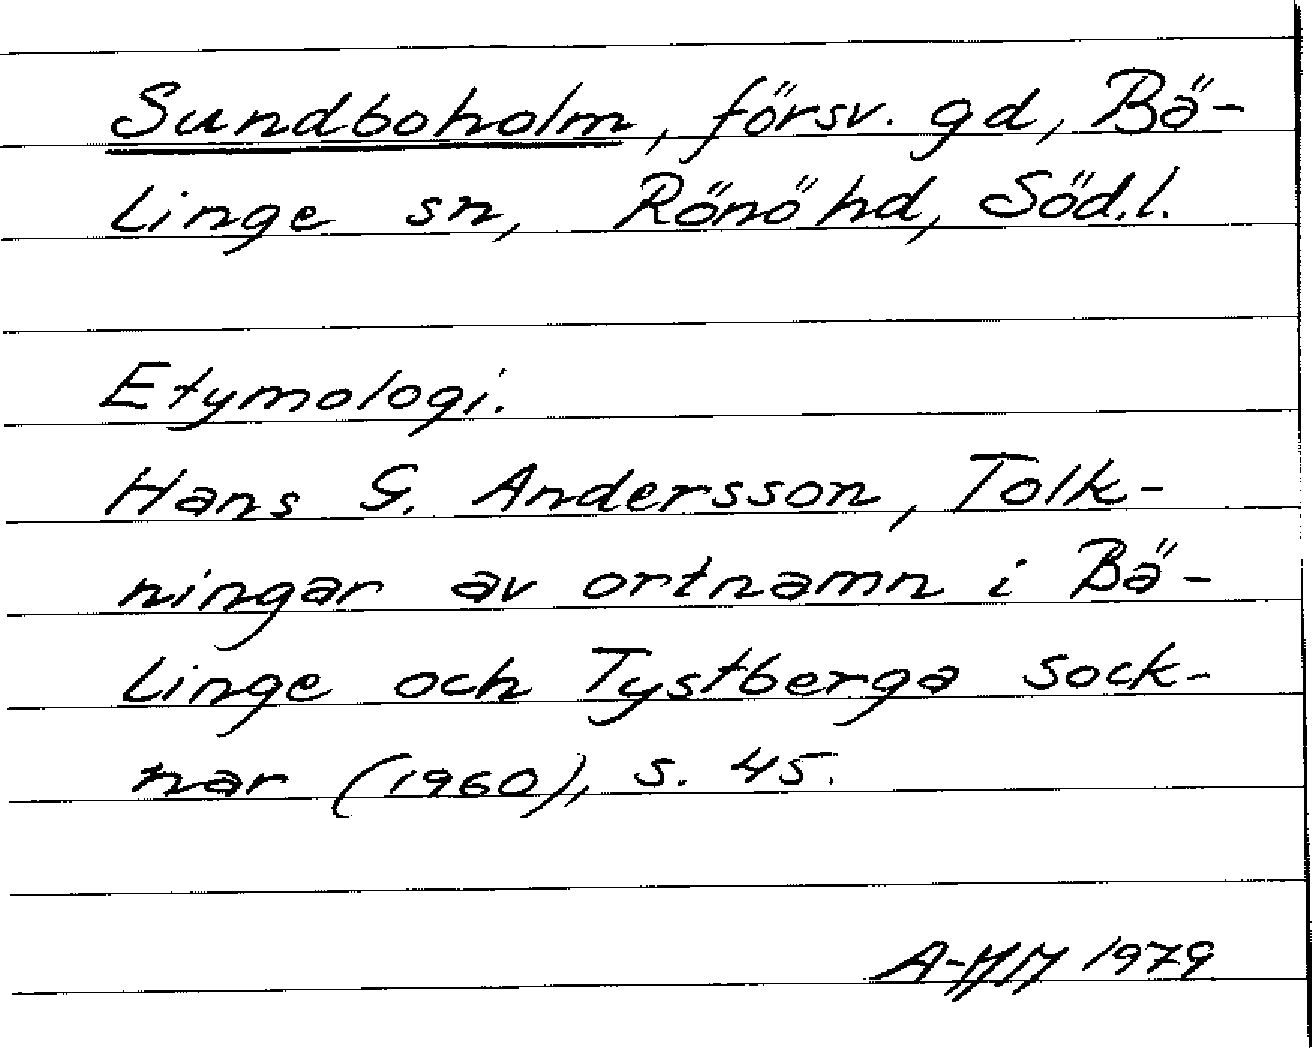 Sundboholm, försv. gd, Bä-
linge sn, Rönö hd, Söd.l.
Etymologi.
Hans G. Andersson, Tolk-
ningar av ortnamn i Bä-
linge och Tystberga sock-
nar (1960), s. 45.
A-HM 1979